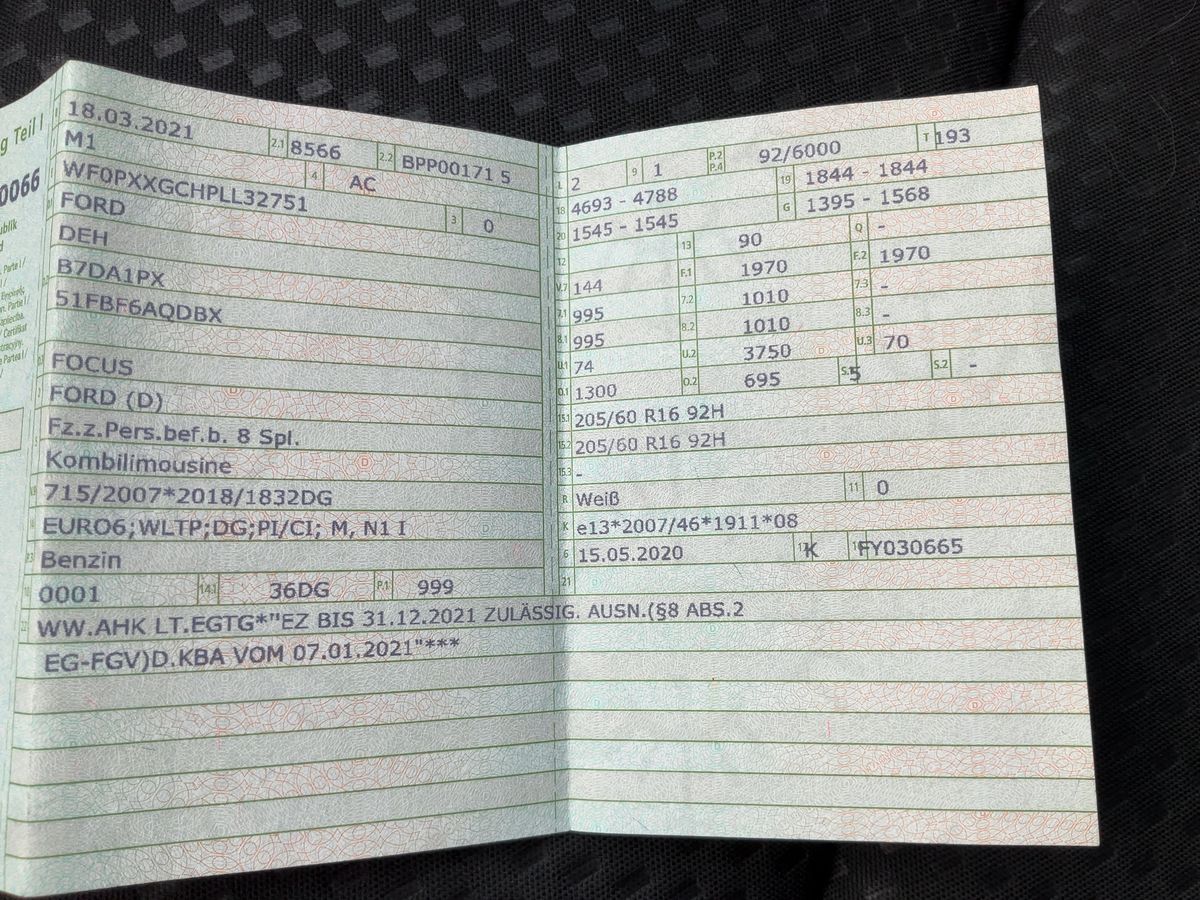 g Teil I
0066
ublik
d
Partei /
18.03.2021 2.1 8566 2.2 BPP00171 5
M1 4 AC
WF0PXXGCHPLL32751 3 0
FORD
DEH
B7DA1PX
51FBF6AQDBX
FOCUS
FORD (D)
Fz.z.Pers.bef.b. 8 Spl.
Kombilimousine
715/2007*2018/1832DG
EURO6;WLTP;DG;PI/CI; M, N1 I
Benzin
0001 14.1 36DG P.1 999
L 2 9 1 P.2 P.4 92/6000 T 193
18 4693 - 4788 19 1844 - 1844
20 1545 - 1545 G 1395 - 1568
12 13 90 Q -
V.7 144 F.1 1970 F.2 1970
7.1 995 7.2 1010 7.3 -
8.1 995 8.2 1010 8.3 -
U.1 74 U.2 3750 U.3 70
O.1 1300 O.2 695 S.1 5 S.2 -
15.1 205/60 R16 92H
15.2 205/60 R16 92H
15.3 -
R Weiß 11 0
K e13*2007/46*1911*08
6 15.05.2020 17 K 16 FY030665
21
22 WW.AHK LT.EGTG*"EZ BIS 31.12.2021 ZULÄSSIG. AUSN.(§8 ABS.2
EG-FGV)D.KBA VOM 07.01.2021"***